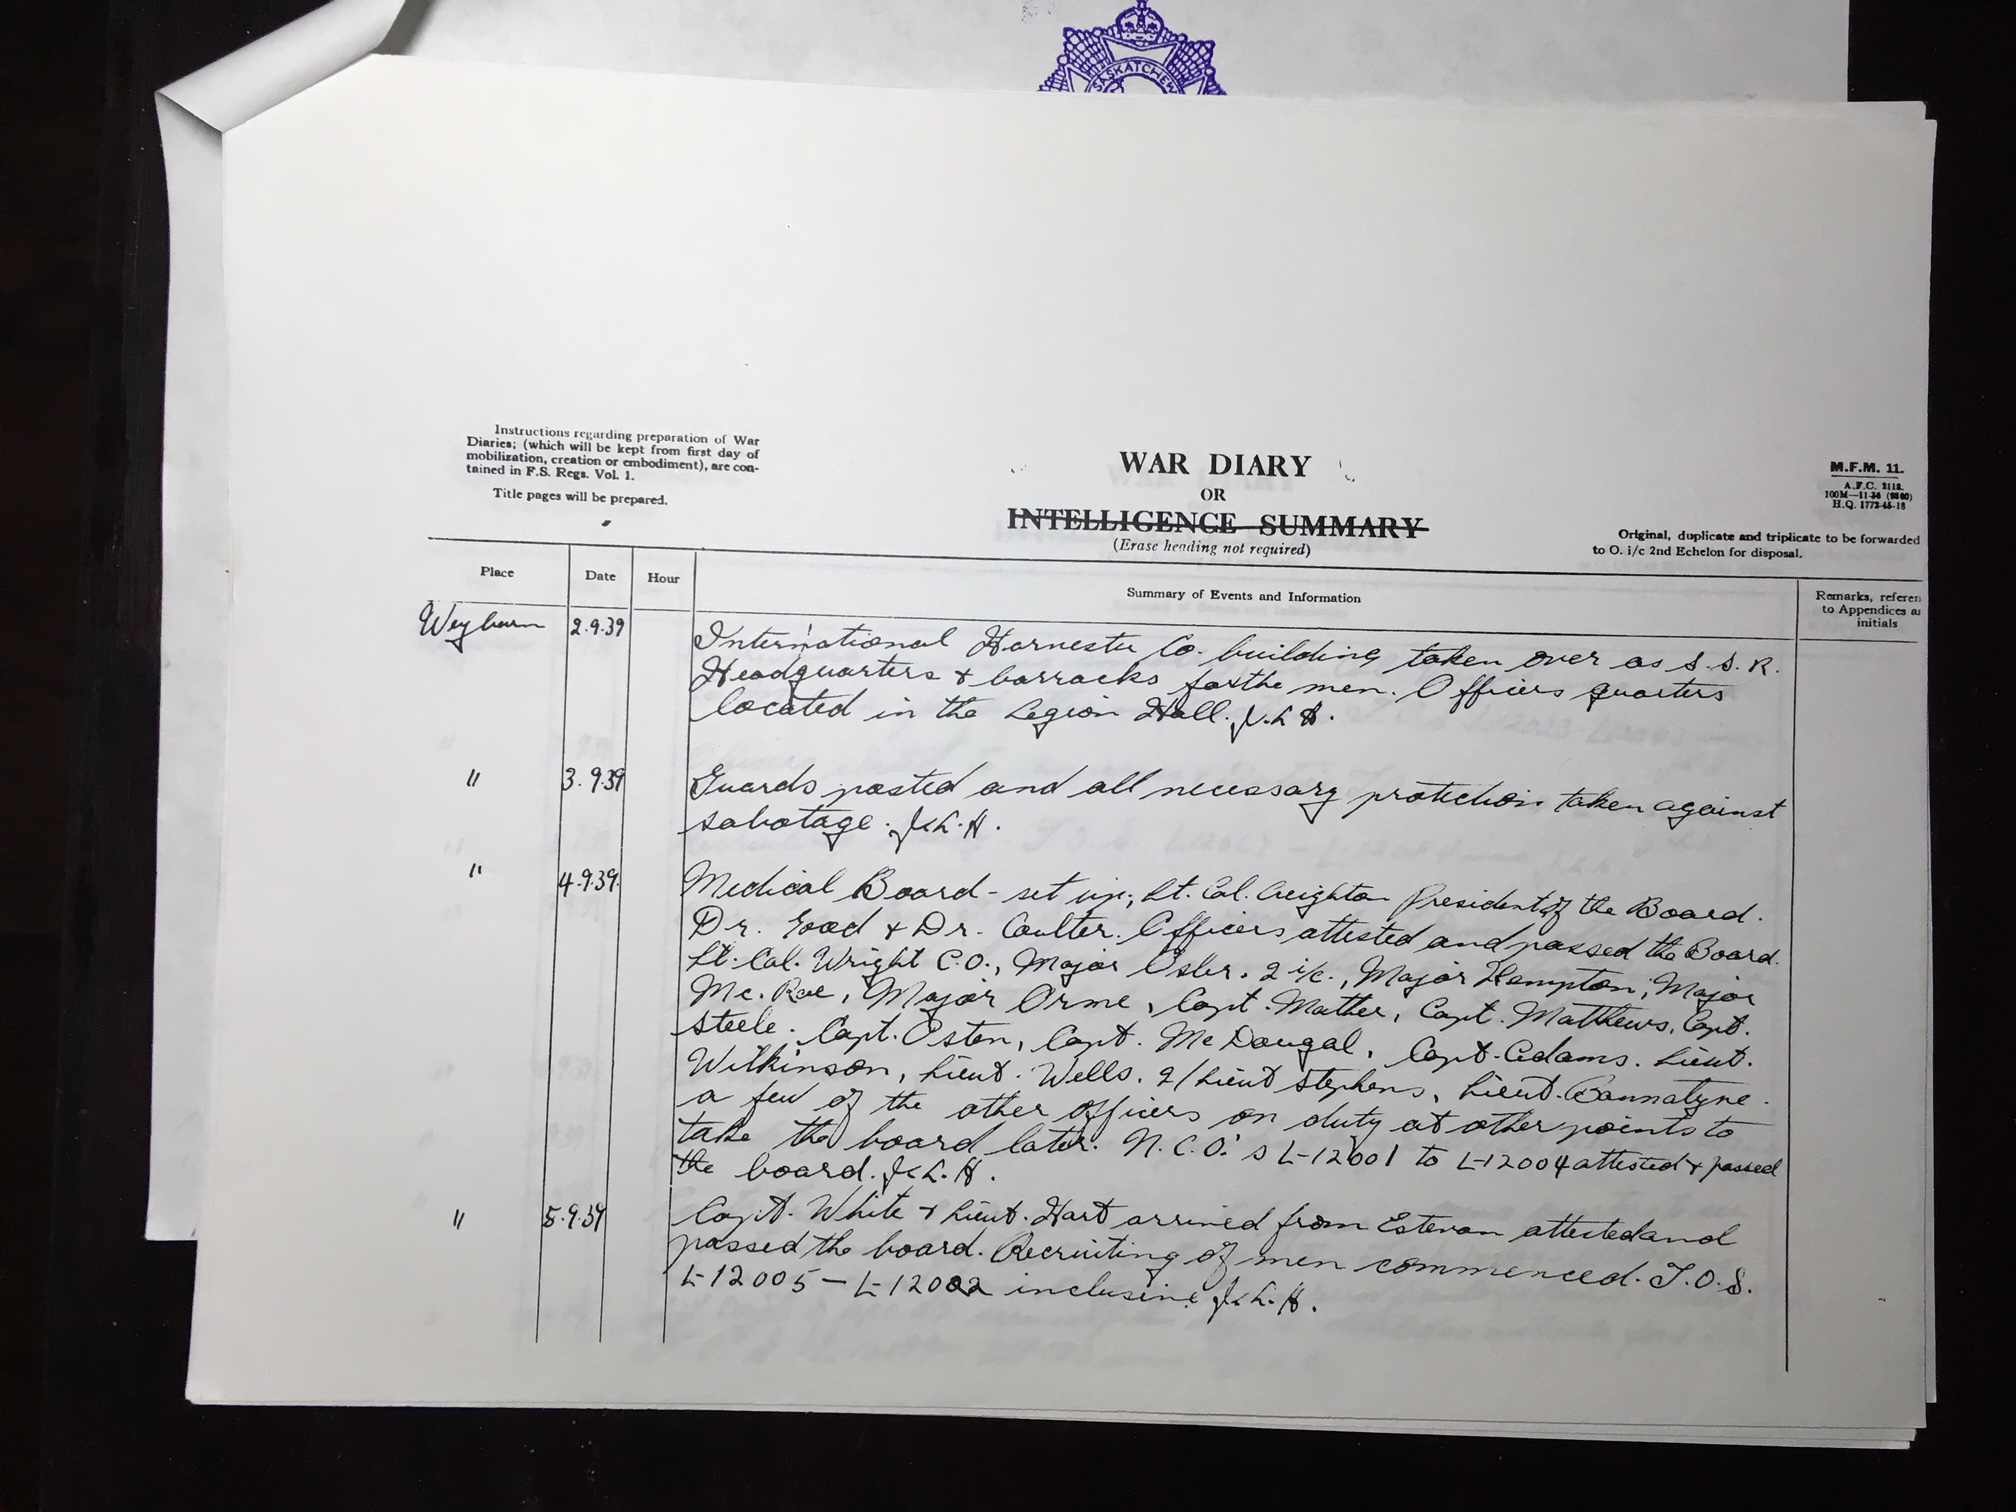 SASKATCHEW
Instructions regarding preparation of War
Diaries; (which will be kept from first day of
mobilization, creation or embodiment), are con-
tained in F.S. Regs. Vol. 1.
Title pages will be prepared.
WAR DIARY
OR
INTELLIGENCE SUMMARY
(Erase heading not required)
M.F.M. 11.
A.F.C. 2118.
100M—11-36 (9860)
H.Q. 1772-45-18
Original, duplicate and triplicate to be forwarded
to O. i/c 2nd Echelon for disposal.
Place Date Hour Summary of Events and Information
Remarks, referen
to Appendices a
initials
Weyburn 2.9.39 International Harvester Co. building taken over as S.S.R.
Headquarters & barracks for the men. Officers quarters
located in the Legion Hall. J.L.H.
" 3.9.39 Guards posted and all necessary protection taken against
sabotage. J.L.H.
" 4.9.39. Medical Board - set up, Lt. Col. Creighton President of the Board.
Dr. Good & Dr. Coulter. Officers attested and passed the Board.
Lt. Col. Wright C.O., Major Osler. 2 i/c., Major Hempton, Major
Mc. Rae, Major Orme, Capt. Mather, Capt. Matthews, Capt.
Steele. Capt. Osten, Capt. McDougal, Capt. Adams. Lieut.
Wilkinson, Lieut. Wells. 2/Lieut Stephens, Lieut. Bannatyne.
a few of the other officers on duty at other points to
take the board later. N.C.O.'s L-12001 to L-12004 attested & passed
the board. J.L.H.
" 5.9.39 Capt. White & Lieut. Hart arrived from Estevan attested and
passed the board. Recruiting of men commenced. T.O.S.
L-12005 — L-12022 inclusive J.L.H.